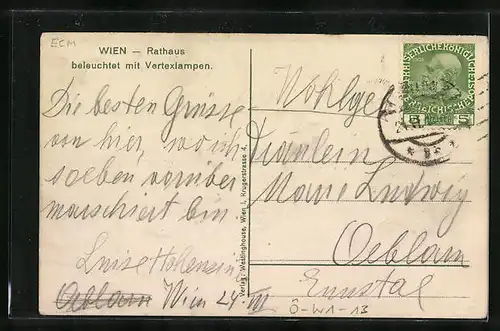 ECM
WIEN — Rathaus
beleuchtet mit Vertexlampen.
Die besten Grüsse
von hier, wo ich
soeben vorüber
marschiert bin.
Luise
Oeblarn Wien 24. III
Verlag: Westinghouse, Wien I, Krugerstrasse 4.
5 5
Wohlgeb
Fräulein
Marie Ludwig
Oeblarn
Ennstal
Ö-W1-13